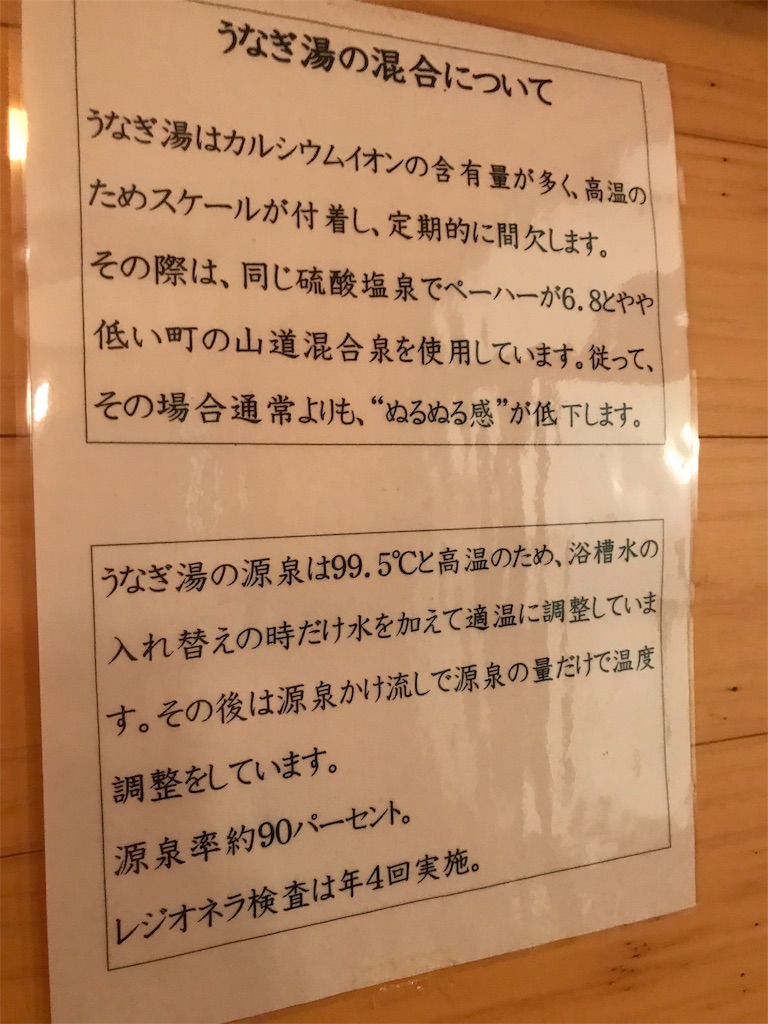 うなぎ湯の混合について
うなぎ湯はカルシウムイオンの含有量が多く、高温の
ためスケールが付着し、定期的に間欠します。
その際は、同じ硫酸塩泉でペーハーが6.8とやや
低い町の山道混合泉を使用しています。従って、
その場合通常よりも、“ぬるぬる感”が低下します。
うなぎ湯の源泉は99.5℃と高温のため、浴槽水の
入れ替えの時だけ水を加えて適温に調整していま
す。その後は源泉かけ流しで源泉の量だけで温度
調整をしています。
源泉率約90パーセント。
レジオネラ検査は年4回実施。